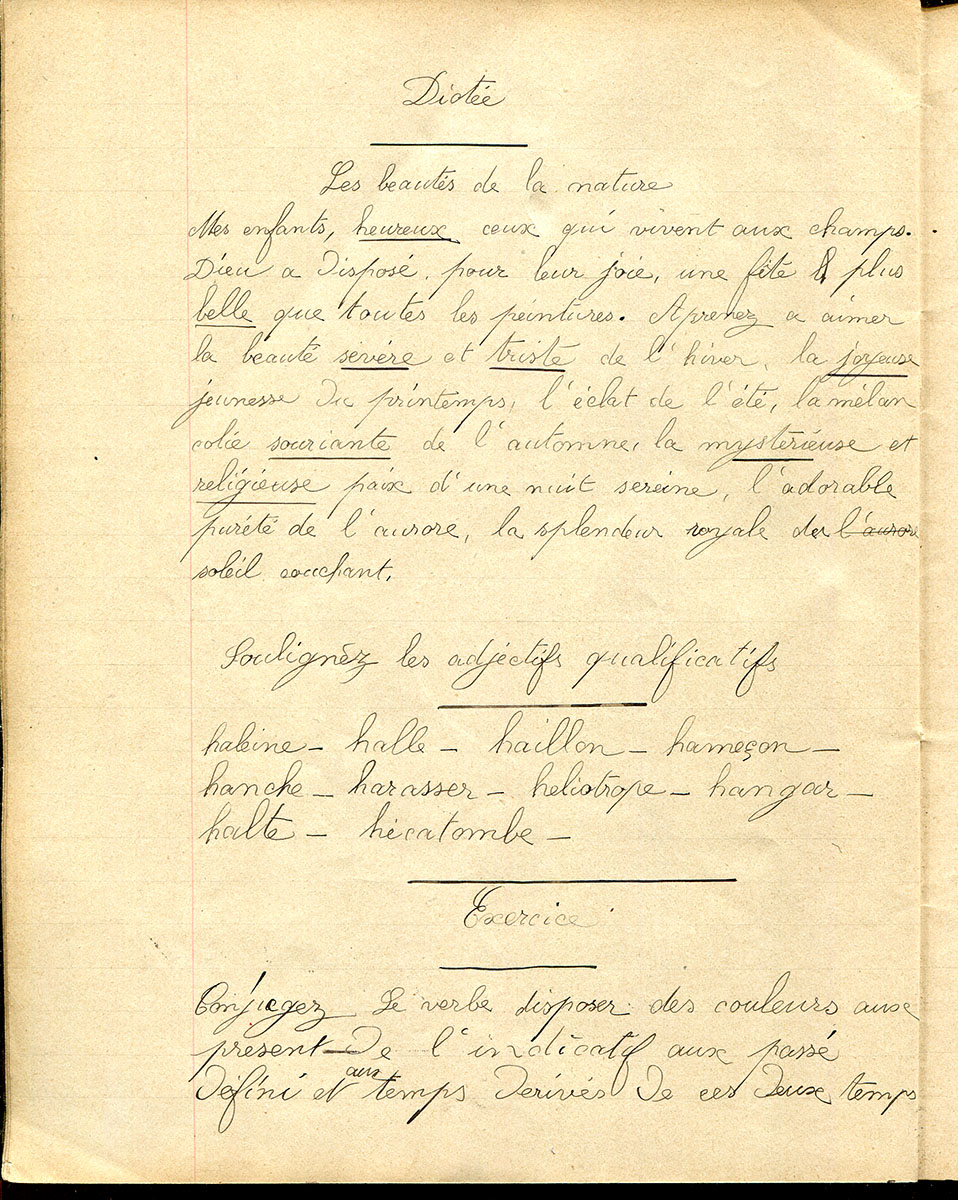 Dictée
Les beautés de la nature
Mes enfants, heureux ceux qui vivent aux champs.
Dieu a disposé, pour leur joie, une fête plus
belle que toutes les peintures. Aprenez a aimer
la beauté sévère et triste de l'hiver, la joyeuse
jeunesse du printemps, l'éclat de l'été, la mélan
colie souriante de l'automne, la mystérieuse et
religieuse paix d'une nuit sereine, l'adorable
pureté de l'aurore, la splendeur royale du l'aurore
soleil couchant.
Soulignez les adjectifs qualificatifs
haleine - halle - haillon - hameçon -
hanche - harasser - heliotrope - hangar -
halte - hécatombe -
Exercice
Conjugez le verbe disposer des couleurs aux
present de l'indicatif aux passé
défini et aux temps dérivés de ces deux temps